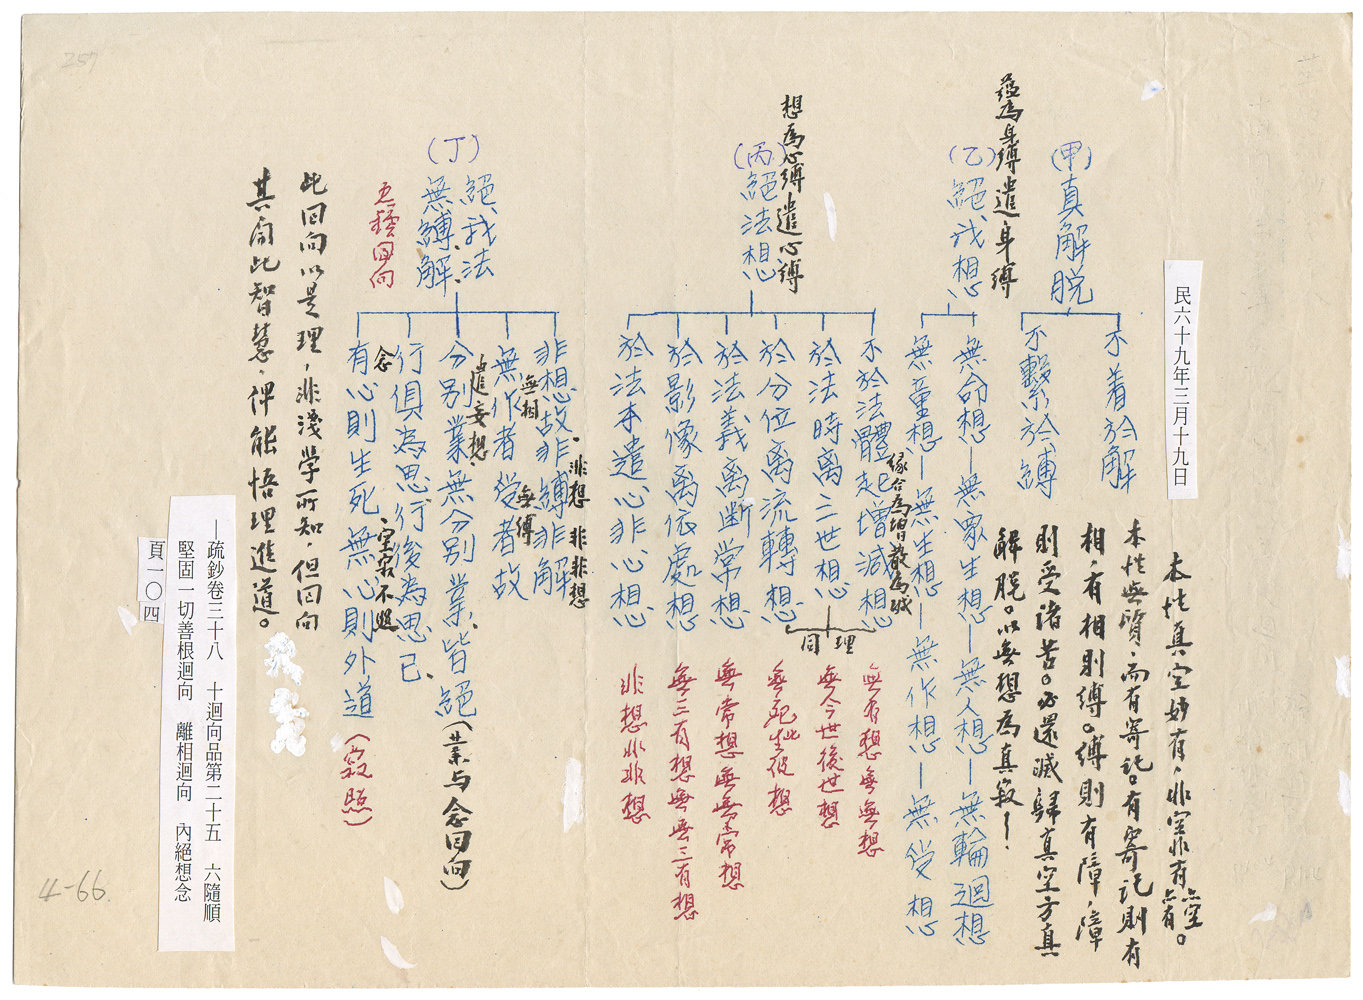 民六十九年三月十九日
(甲)真解脫
不着於解
不繫於縛
本性真空妙有，非空非有亦空亦有。
本性無質，而有寄記。有寄記則有
相，有相則縛。縛則有障，障
則受諸苦。必還滅歸真空方真
解脫。以無想為真寂！
蘊為身縛遣身縛
(乙)絕我想
無命想—無眾生想—無人想—無輪迴想
無童想—無生想—無作想—無受想
想為心縛遣心縛
(丙)絕法想
不於法體起增減想
緣合為增散為減
於法時离三世想
同理
於分位离流轉想
於法義离斷常想
於影像离依處想
於法本遣心非心想
無有想無無想
無今世後世想
無死此生彼想
無常想無無常想
無三有想無無三有想
非想非非想
(丁)絕我法
無縛解
五種回向
非想故非縛非解
非想 非非想
無作者受者故
無相
無縛
分別業無分別業皆絕(業与念回向)
遣妄想
行俱為思行後為思已
念
有心則生死無心則外道(寂照)
空寂不照
此回向以是理，非淺學所知，但回向
其聞此智慧，俾能悟理進道。
—疏鈔卷三十八 十迴向品第二十五 六隨順
堅固一切善根迴向 離相迴向 內絕想念
頁一〇四
4-66.
257